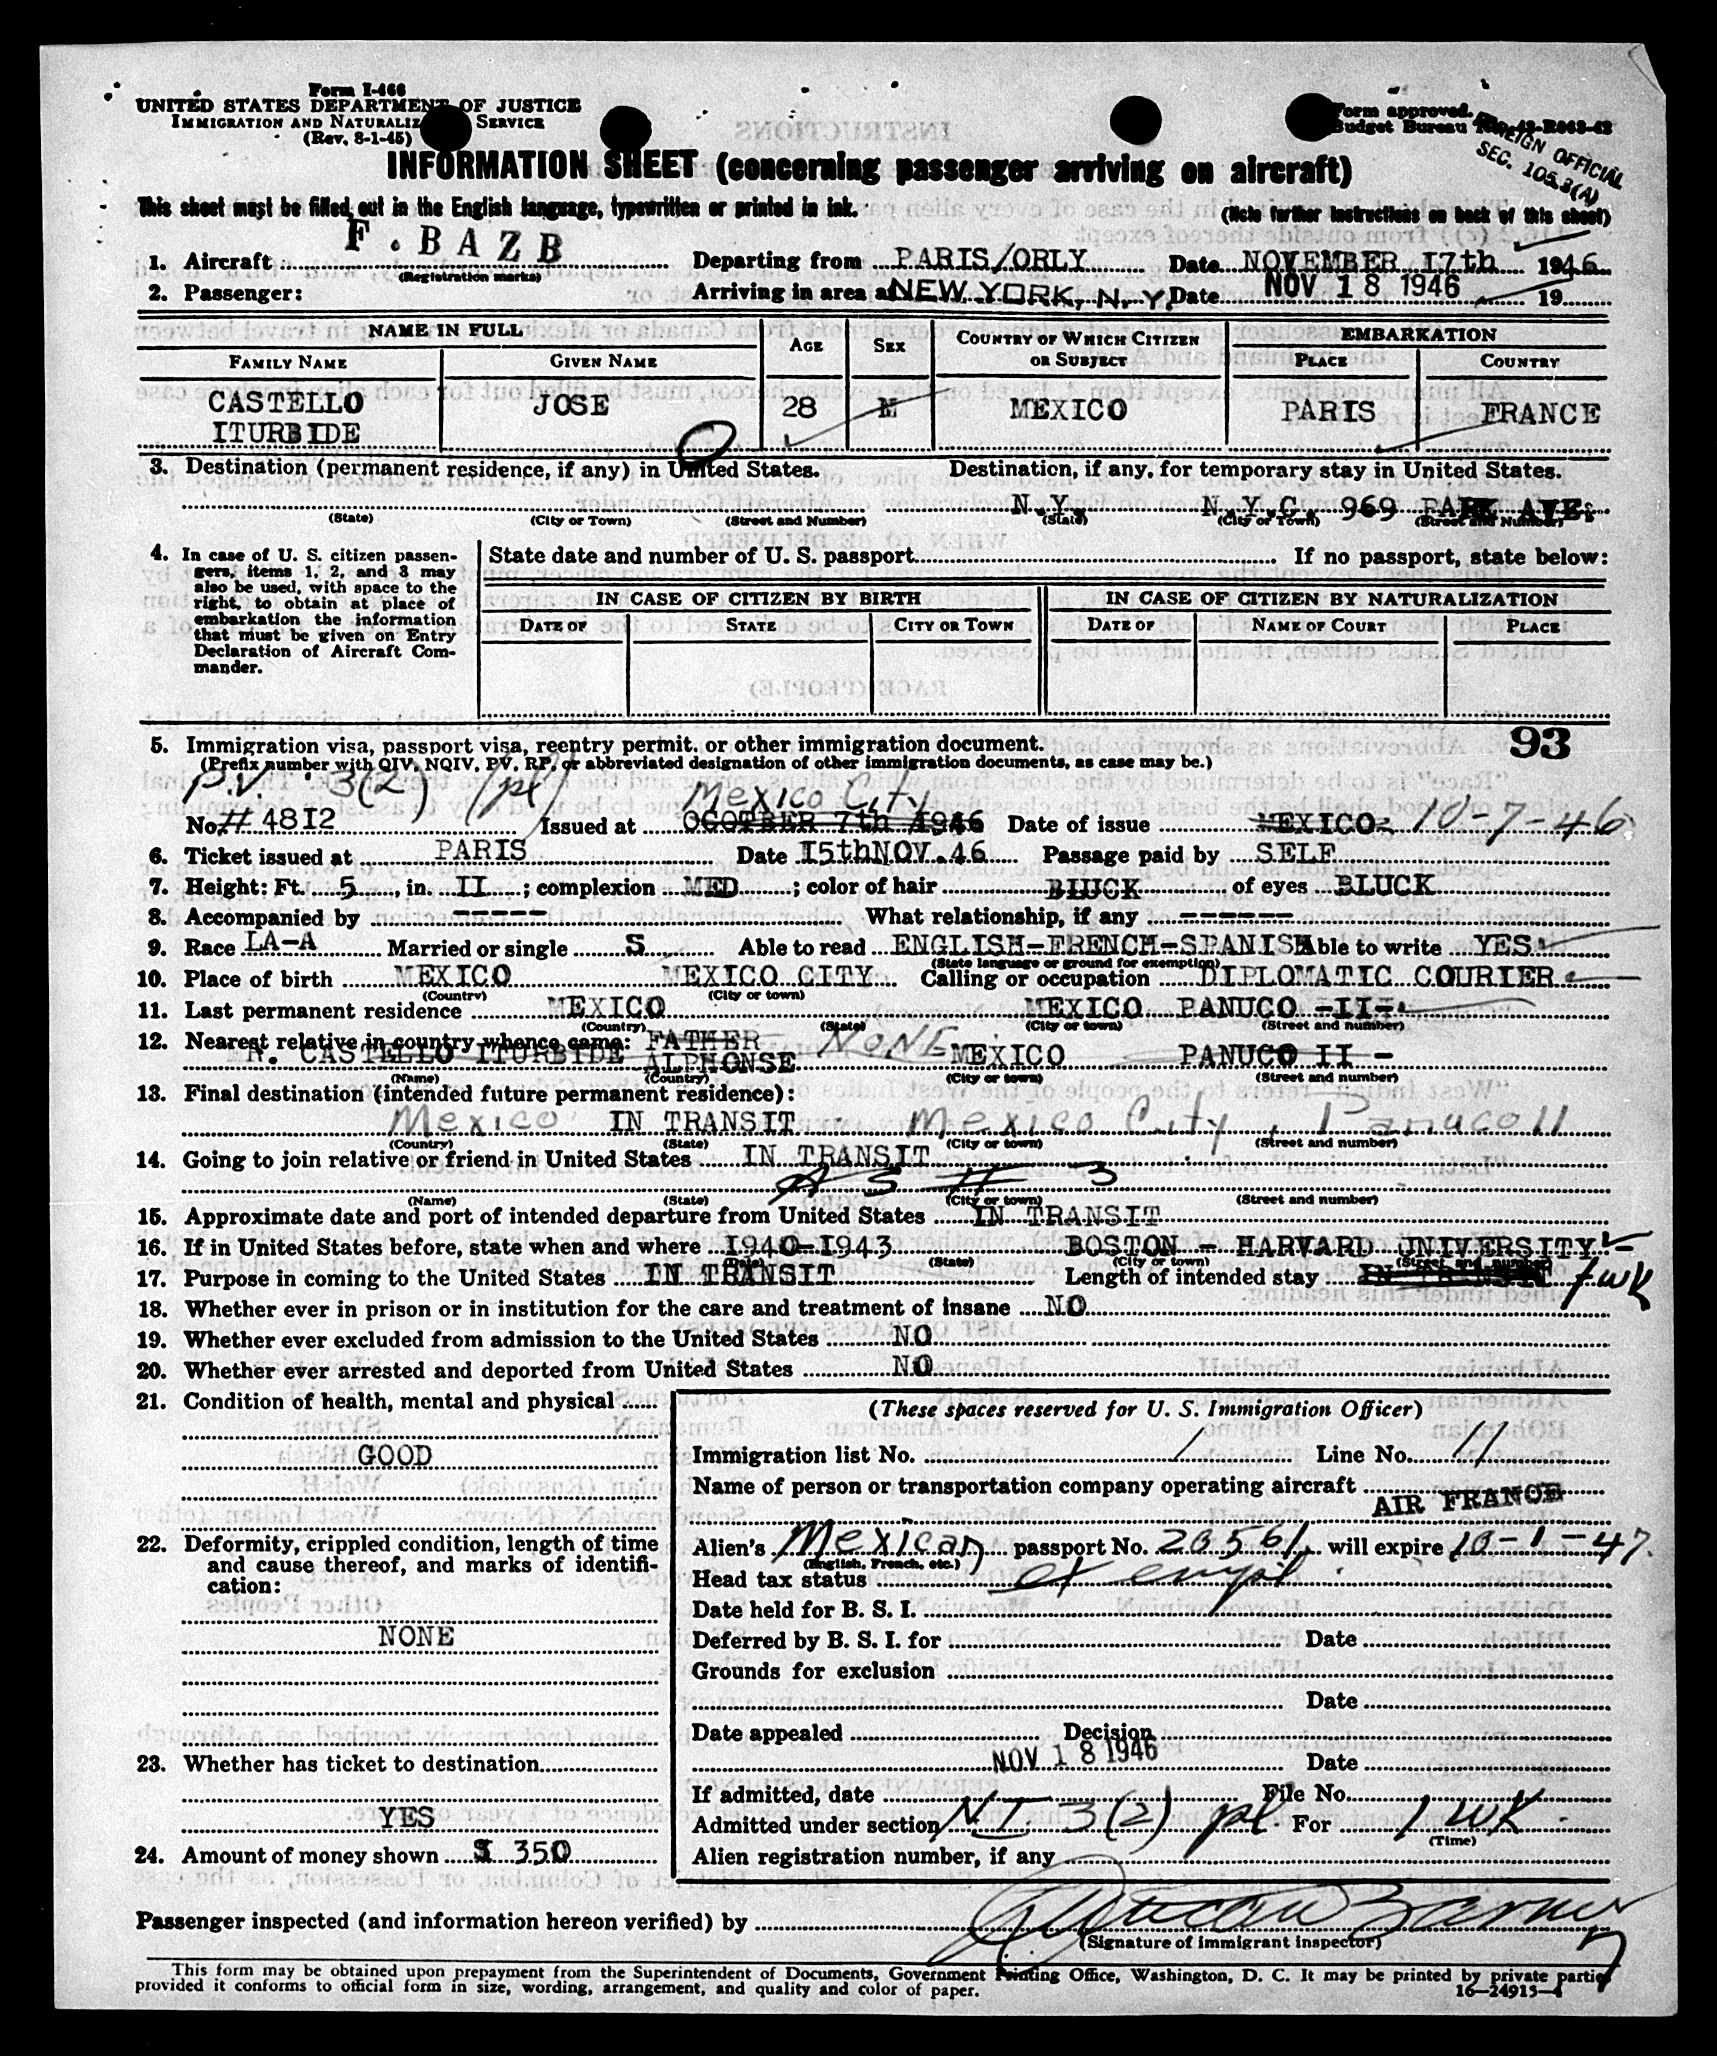 Form I-466
UNITED STATES DEPARTMENT OF JUSTICE
IMMIGRATION AND NATURALIZ SERVICE
(Rev. 8-1-45)
Form approved.
Budget Bureau No. 43-R063-42
FOREIGN OFFICIAL
SEC. 105.3(A)
INFORMATION SHEET (concerning passenger arriving on aircraft)
This sheet must be filled out in the English language, typewritten or printed in ink.
(Note further instructions on back of this sheet)
1. Aircraft F.BAZB Departing from PARIS/ORLY Date NOVEMBER I7th 1946
(Registration marks)
2. Passenger: Arriving in area at NEW YORK, N. Y. Date NOV 18 1946 19
NAME IN FULL AGE SEX COUNTRY OF WHICH CITIZEN OR SUBJECT EMBARKATION
FAMILY NAME GIVEN NAME PLACE COUNTRY
CASTELLO JOSE 28 M MEXICO PARIS FRANCE
ITURBIDE
3. Destination (permanent residence, if any) in United States. Destination, if any, for temporary stay in United States.
N.Y. N.Y.C. 969 PARK AVE.
(State) (City or Town) (Street and Number) (State) (City or Town) (Street and Number)
4. In case of U. S. citizen passengers, items 1, 2, and 3 may also be used, with space to the right, to obtain at place of embarkation the information that must be given on Entry Declaration of Aircraft Commander.
State date and number of U. S. passport If no passport, state below:
IN CASE OF CITIZEN BY BIRTH IN CASE OF CITIZEN BY NATURALIZATION
DATE OF STATE CITY OR TOWN DATE OF NAME OF COURT PLACE
93
5. Immigration visa, passport visa, reentry permit, or other immigration document.
(Prefix number with QIV, NQIV, PV, RP, or abbreviated designation of other immigration documents, as case may be.)
P.V. 3(2) pl Mexico City
No. # 48I2 Issued at OCOTBER 7th 1946 Date of issue MEXICO 10-7-46
6. Ticket issued at PARIS Date I5thNOV.46 Passage paid by SELF
7. Height: Ft. 5, in. II; complexion MED; color of hair BLUCK of eyes BLUCK
8. Accompanied by ----- What relationship, if any ------
9. Race LA-A Married or single S Able to read ENGLISH-FRENCH-SPANISH Able to write YES
(State language or ground for exemption)
10. Place of birth MEXICO MEXICO CITY Calling or occupation DIPLOMATIC COURIER
(Country) (City or town)
11. Last permanent residence MEXICO MEXICO PANUCO -II-
(Country) (State) (City or town) (Street and number)
12. Nearest relative in country whence came: FATHER NONE
CASTELLO ITURBIDE ALPHONSE MEXICO PANUCO II -
(Name) (Country) (City or town) (Street and number)
13. Final destination (intended future permanent residence):
Mexico IN TRANSIT Mexico City, Panuco 11
(Country) (State) (City or town) (Street and number)
14. Going to join relative or friend in United States IN TRANSIT
AS # 3
(Name) (State) (City or town) (Street and number)
15. Approximate date and port of intended departure from United States IN TRANSIT
16. If in United States before, state when and where I940-I943 BOSTON - HARVARD UNIVERSITY -
(Date) (State) (City or town) (Street and number)
17. Purpose in coming to the United States IN TRANSIT Length of intended stay IN TRANSIT 1 wk
18. Whether ever in prison or in institution for the care and treatment of insane NO
19. Whether ever excluded from admission to the United States NO
20. Whether ever arrested and deported from United States NO
21. Condition of health, mental and physical
GOOD
22. Deformity, crippled condition, length of time and cause thereof, and marks of identification:
NONE
23. Whether has ticket to destination
YES
24. Amount of money shown $ 350
(These spaces reserved for U. S. Immigration Officer)
Immigration list No. 1 Line No. 11
Name of person or transportation company operating aircraft
AIR FRANCE
Alien's Mexican passport No. 20561 will expire 10-1-47
(English, French, etc.)
Head tax status exempt
Date held for B. S. I.
Deferred by B. S. I. for Date
Grounds for exclusion
Date
Date appealed Decision
NOV 18 1946 Date
If admitted, date File No.
Admitted under section N.I. 3(2) pl. For 1 wk.
(Time)
Alien registration number, if any
Passenger inspected (and information hereon verified) by
(Signature of immigrant inspector)
This form may be obtained upon prepayment from the Superintendent of Documents, Government Printing Office, Washington, D. C. It may be printed by private parties
provided it conforms to official form in size, wording, arrangement, and quality and color of paper. 16-24915-4